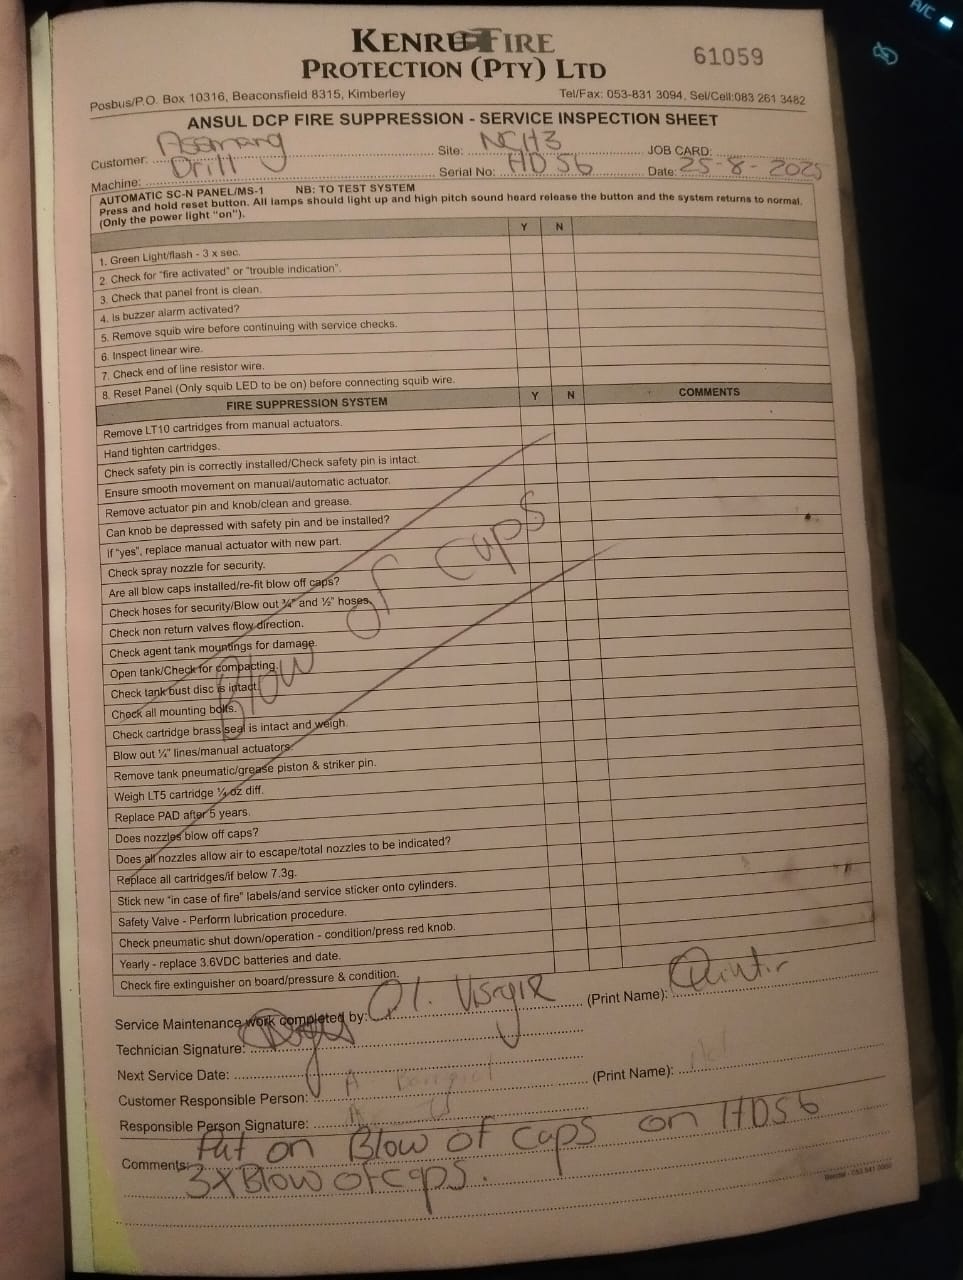 KENRU FIRE
PROTECTION (PTY) LTD
61059
Posbus/P.O. Box 10316, Beaconsfield 8315, Kimberley
Tel/Fax: 053-831 3094, Sel/Cell:083 261 3482
ANSUL DCP FIRE SUPPRESSION - SERVICE INSPECTION SHEET
Customer: Assmang Site: NCH3 JOB CARD:
Machine: Drill Serial No: HD56 Date: 25-8-2025
AUTOMATIC SC-N PANEL/MS-1 NB: TO TEST SYSTEM
Press and hold reset button. All lamps should light up and high pitch sound heard release the button and the system returns to normal.
(Only the power light "on").
Y N
1. Green Light/flash - 3 x sec.
2. Check for "fire activated" or "trouble indication".
3. Check that panel front is clean.
4. Is buzzer alarm activated?
5. Remove squib wire before continuing with service checks.
6. Inspect linear wire.
7. Check end of line resistor wire.
8. Reset Panel (Only squib LED to be on) before connecting squib wire.
FIRE SUPPRESSION SYSTEM Y N COMMENTS
Remove LT10 cartridges from manual actuators.
Hand tighten cartridges.
Check safety pin is correctly installed/Check safety pin is intact.
Ensure smooth movement on manual/automatic actuator.
Remove actuator pin and knob/clean and grease.
Can knob be depressed with safety pin and be installed?
If "yes", replace manual actuator with new part.
Check spray nozzle for security.
Are all blow caps installed/re-fit blow off caps?
Check hoses for security/Blow out ¾" and ½" hoses.
Check non return valves flow direction.
Check agent tank mountings for damage.
Open tank/Check for compacting.
Check tank bust disc is intact.
Check all mounting bolts.
Check cartridge brass seal is intact and weigh.
Blow out ¼" lines/manual actuators.
Remove tank pneumatic/grease piston & striker pin.
Weigh LT5 cartridge ¼ oz diff.
Replace PAD after 5 years.
Does nozzles blow off caps?
Does all nozzles allow air to escape/total nozzles to be indicated?
Replace all cartridges/if below 7.3g.
Stick new "in case of fire" labels/and service sticker onto cylinders.
Safety Valve - Perform lubrication procedure.
Check pneumatic shut down/operation - condition/press red knob.
Yearly - replace 3.6VDC batteries and date.
Check fire extinguisher on board/pressure & condition.
Blow of caps
Service Maintenance work completed by: (Print Name):
Technician Signature:
Next Service Date:
Customer Responsible Person: (Print Name):
Responsible Person Signature:
Comments: Put on Blow of caps on HD56
3x Blow of caps.
A/C